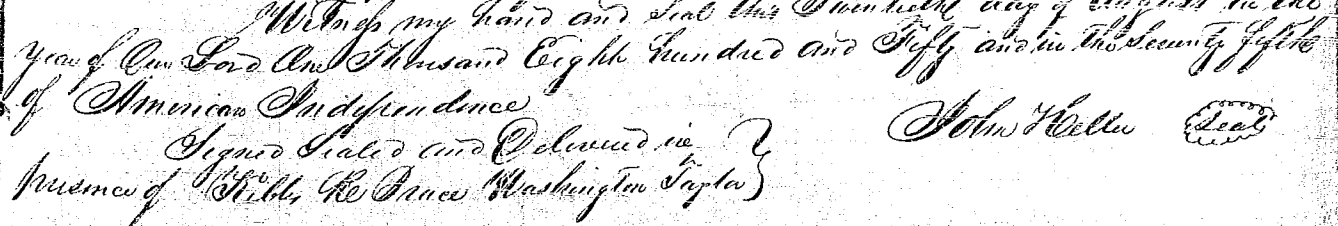 Witness my hand and Seal this Twentieth day of August in the
year of Our Lord One Thousand Eight hundred and Fifty and in the Seventy fifth
of American Independence
John Heller Seal
Signed Sealed and Delivered in
presence of Washington Taylor